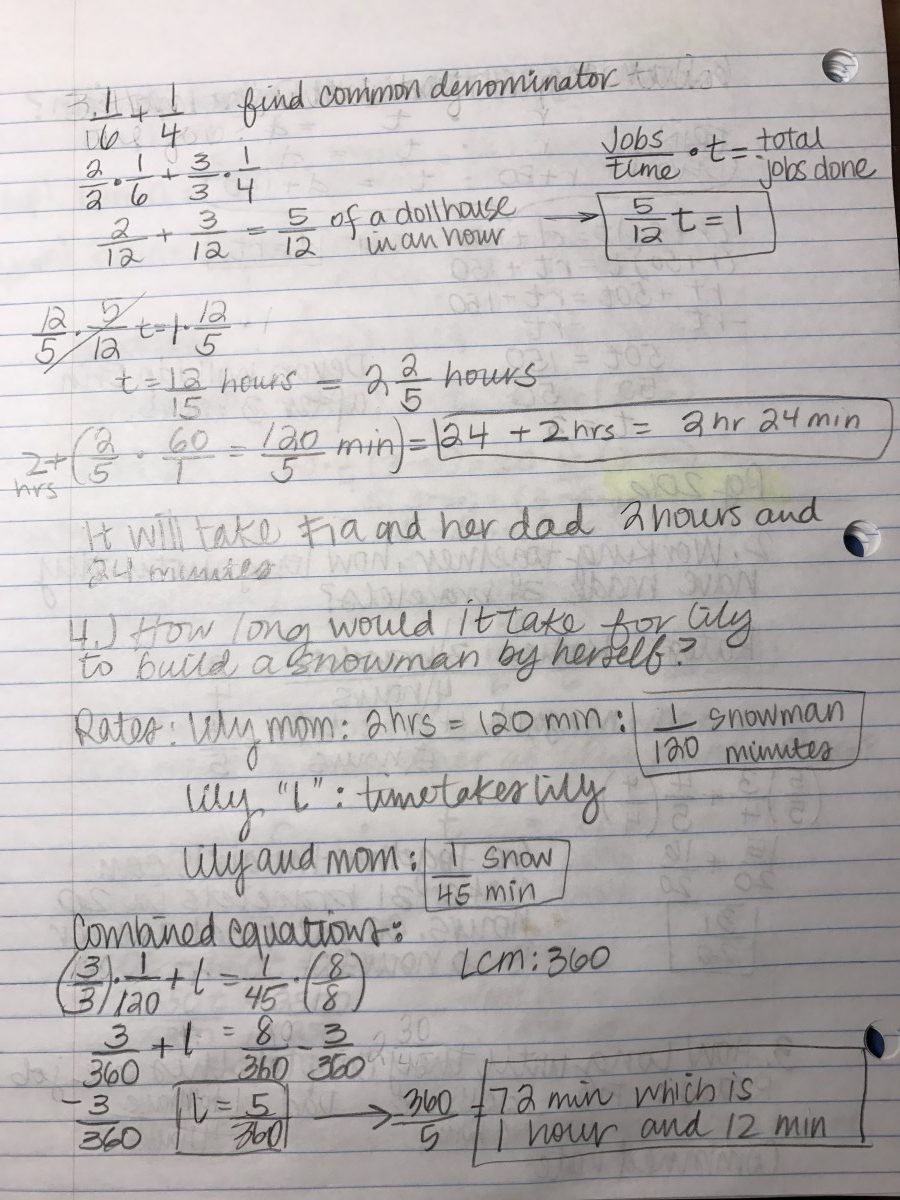 1/6 + 1/4 find common denominator
2/2 · 1/6 + 3/3 · 1/4
Jobs/time · t = total jobs done
2/12 + 3/12 = 5/12 of a dollhouse in an hour → 5/12 t = 1
12/5 · 5/12 t = 1 · 12/5
t = 12/15 hours = 2 2/5 hours
2 hrs + (2/5 · 60/1 = 120/5 min) = 24 + 2 hrs = 2 hr 24 min
It will take Tia and her dad 2 hours and
24 minutes
4.) How long would it take for Lily
to build a snowman by herself?
Rates: Lily mom: 2 hrs = 120 min: 1 snowman/120 minutes
Lily "L": time takes Lily
Lily and mom: 1 snow/45 min
Combined equations:
(3/3) · 1/120 + l = 1/45 · (8/8) LCM: 360
3/360 + l = 8/360 - 3/360
- 3/360 l = 5/360 → 360/5 = 72 min which is
1 hour and 12 min